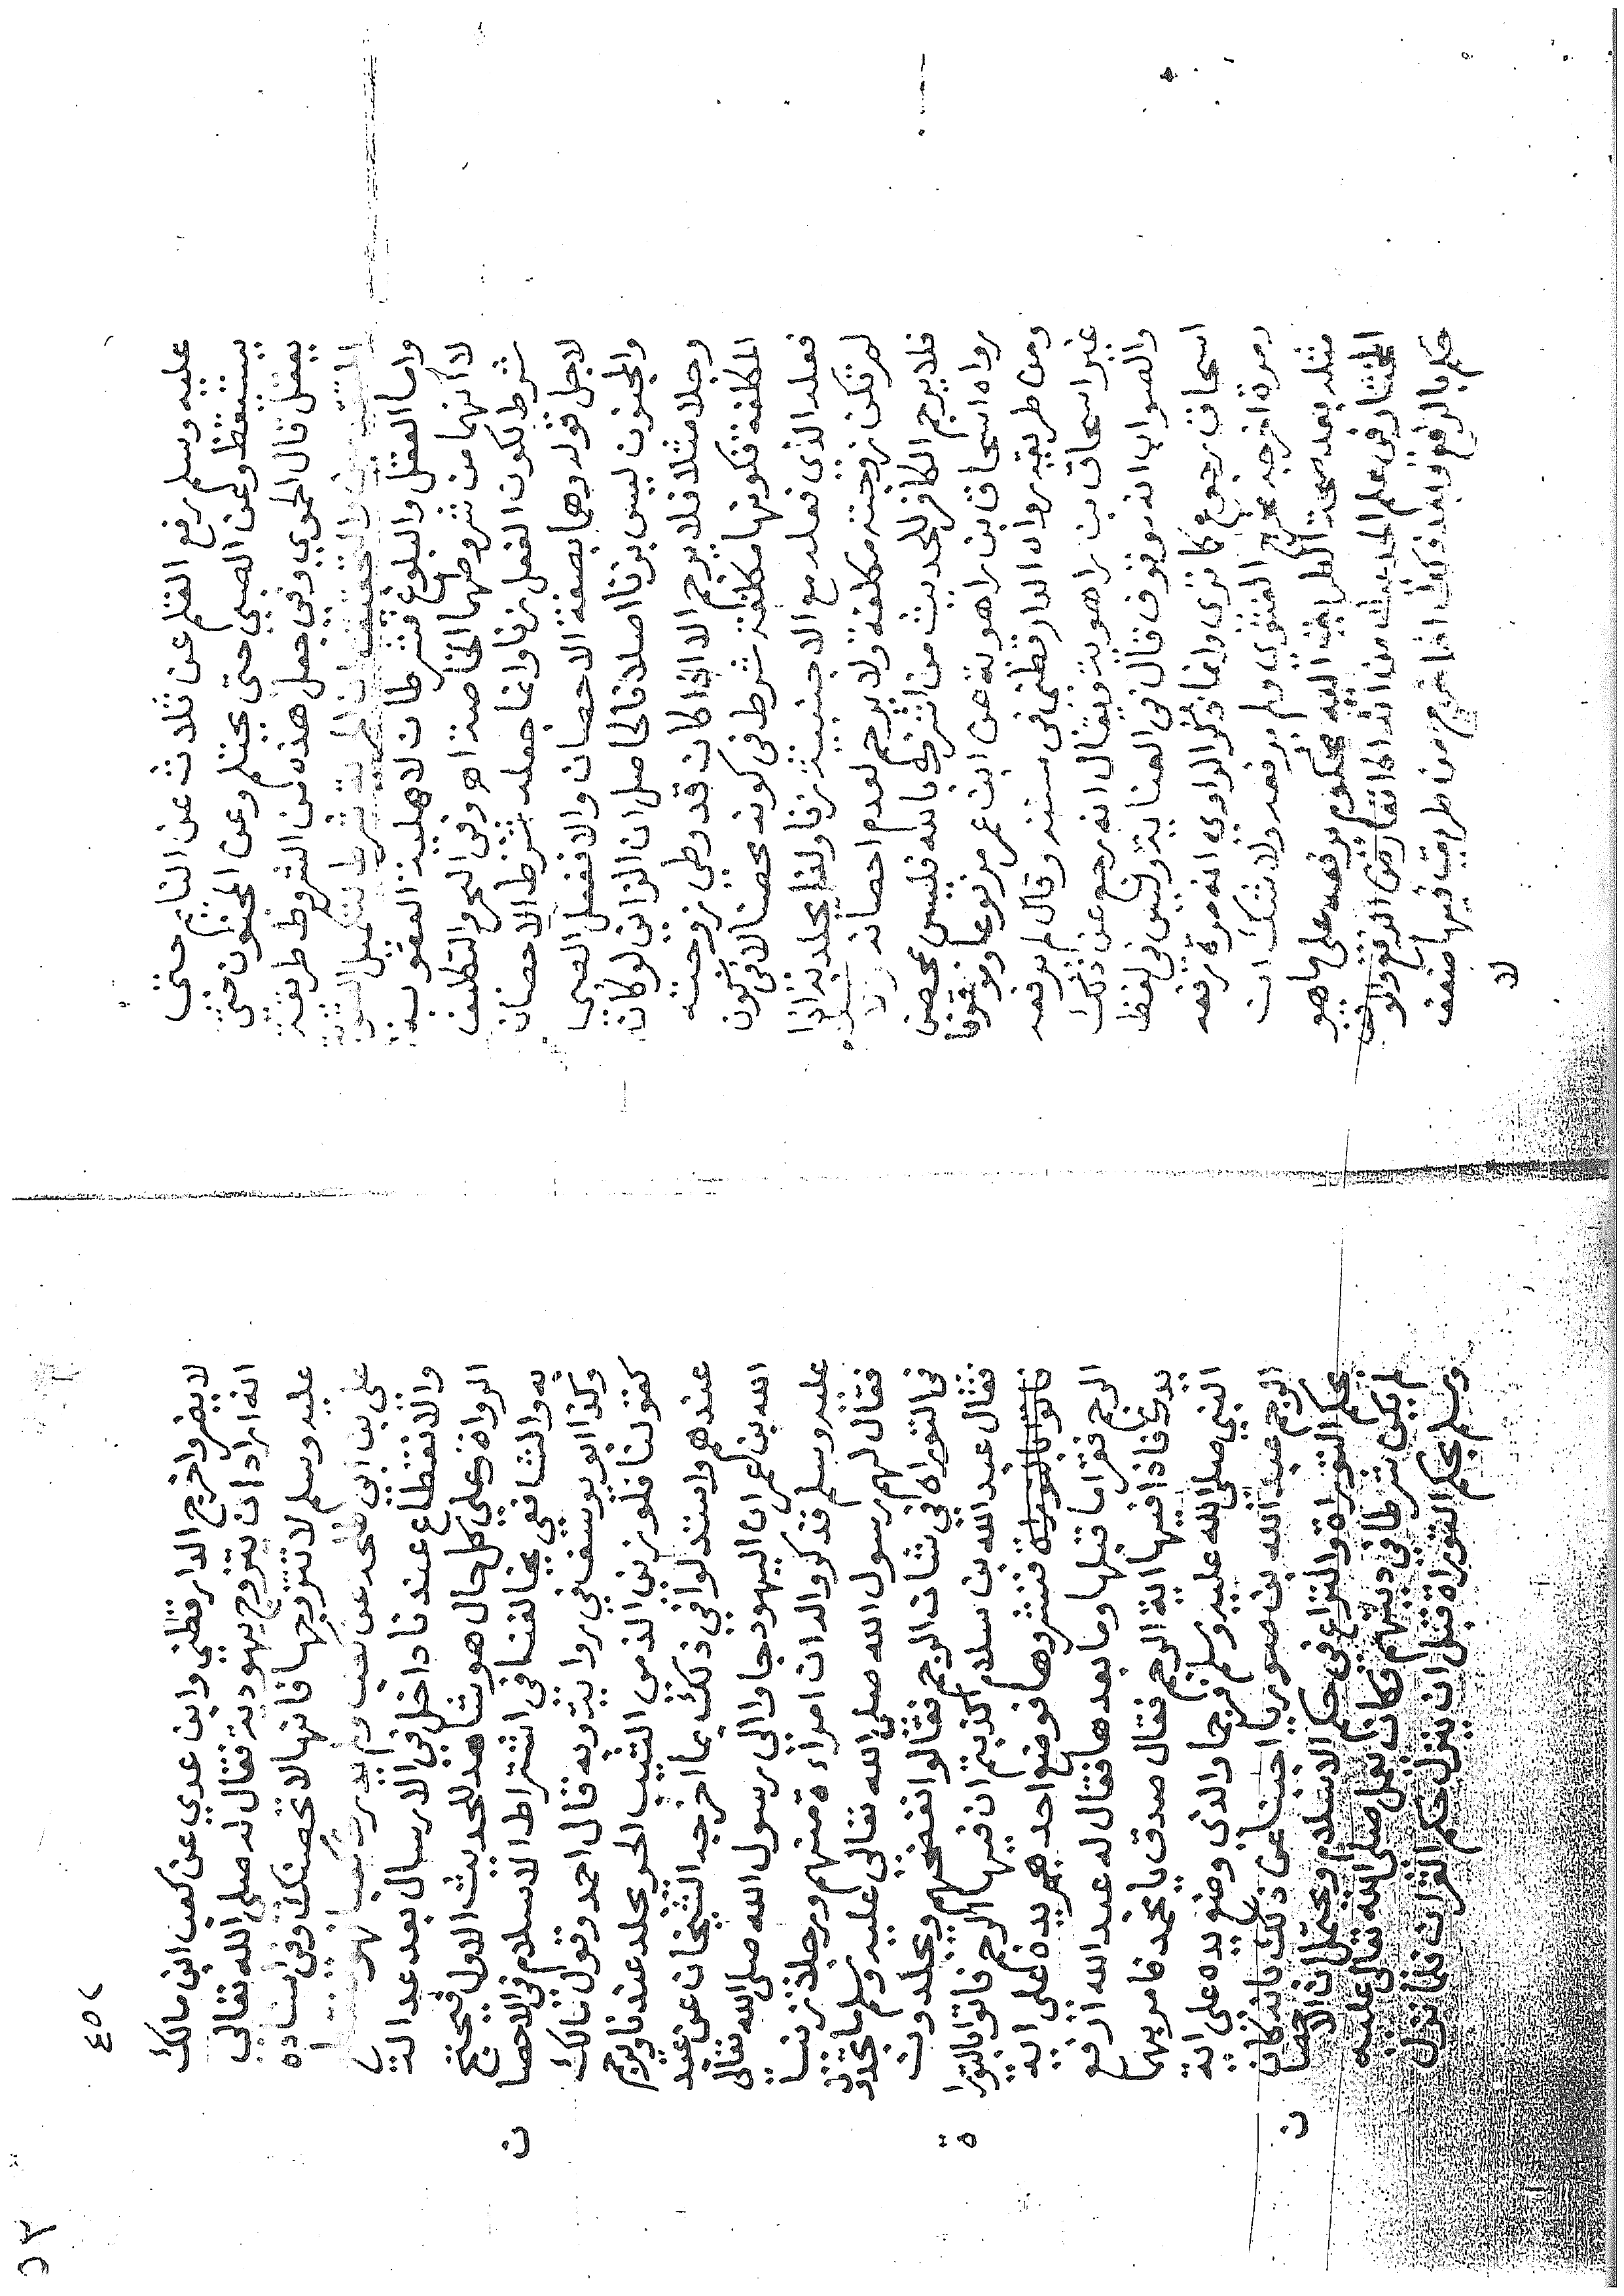 عليه وسلم رفع القلم عن ثلاث عن النايم حتى
يستيقظ وعن الصبي حتى يحتلم وعن المجنون حتى
يعقل قال الحموي وفي جعل هذه من الشروط طريقة
لتكميل العقوبة
واما العقل والبلوغ فشرطان لاهلية العقوبة
لا انهما من شروطها الخاصة اه وفي البحر والتكليف
شرط لكون الفعل زنا وانما جعله شرط الاحصان
لاجل قوله وهما بصفة الاحصان والا ففعل الصبي
والمجنون ليس بزنا اصلا فالحاصل ان الزاني لو كان
رجلا مثلا فلا يرجم الا اذا كان قد وطي زوجته
المكلفة فكونها مكلفة شرط في كونه محصنا لا في كون
فعله الذي فعله مع الاجنبية زنا ولذا يجلد به اذا
لم تكن زوجته مكلفة ولا يرجم لعدم احصانه
فلا يرجم الكافر لحديث من اشرك بالله فليس بمحصن
رواه اسحاق ابن راهويه عن ابن عمر مرفوعا وموقوفا
ومن طريقه رواه الدارقطني في سننه وقال لم يرفعه
غير اسحاق بن راهويه ويقال انه رجع عن ذلك
والصواب انه موقوف قال في العناية وليس في لفظ
اسحاق رجوع كما ترى وانما ذكر الراوي انه مرة رفعه
ومرة اخرجه مخرج الفتوى ولم يرفعه ولا شك ان
مثله بعد صحة الطريق اليه محكوم برفعه على ما هو
المختار في علم الحديث من انه اذا تعارض الرفع والوقف
حكم بالرفع وبعد ذلك اذا خرج من طرق فيها ضعف
لا
٤٥٢
لا يضر واخرج الدارقطني وابن عدي عن كعب ابن مالك
انه اراد ان يتزوج يهودية فقال له صلى الله تعالى
عليه وسلم لا تتزوجها فانها لا تحصنك وفي اسناده
علي بن ابي طلحة عن كعب ولم يدرك كعبا فهو
والانقطاع عندنا داخل في الارسال بعد عدالة
الرواة وعلى كل حال هو شاهد للحديث الاول فيحتج
به والشافعي يخالفنا في اشتراط الاسلام في الاحصا
ن
وكذا ابو يوسف في رواية وبه قال احمد وقول مالك
كقولنا فلو زنى الذمي الثيب الحر يجلد عندنا ويرجم
عندهم واستدلوا في ذلك بما اخرجه الشيخان عن عبد
الله بن عمر ان اليهود جاوا الى رسول الله صلى الله تعالى
عليه وسلم فذكروا له ان امراءة منهم ورجلا زنيا
فقال لهم رسول الله صلى الله تعالى عليه وسلم ما تجدون
في التوراة في شان الرجم فقالوا نفضحهم ويجلدون
فقال عبد الله بن سلام كذبتم ان فيها الرجم فاتوا بالتورا
ة
فاتوا بالتوراة فنشروها فوضع احدهم يده على اية
الرجم فقرا ما قبلها وما بعدها فقال له عبد الله ارفع
يدك فاذا فيها اية الرجم فقال صدق يا محمد فامر بهما
النبي صلى الله عليه وسلم فرجما والذي وضع يده على اية
الرجم عبد الله بن صوريا اجبنا عن ذلك بانه كان
بحكم التوراة والنزاع في حكم الاسلام ويحتمل ان الاحصا
ن
لم يكن شرطا في دينهم فكان يعمل صلى الله تعالى عليه
وسلم بحكم التوراة قبل ان ينزل حكم القران فلما نزل